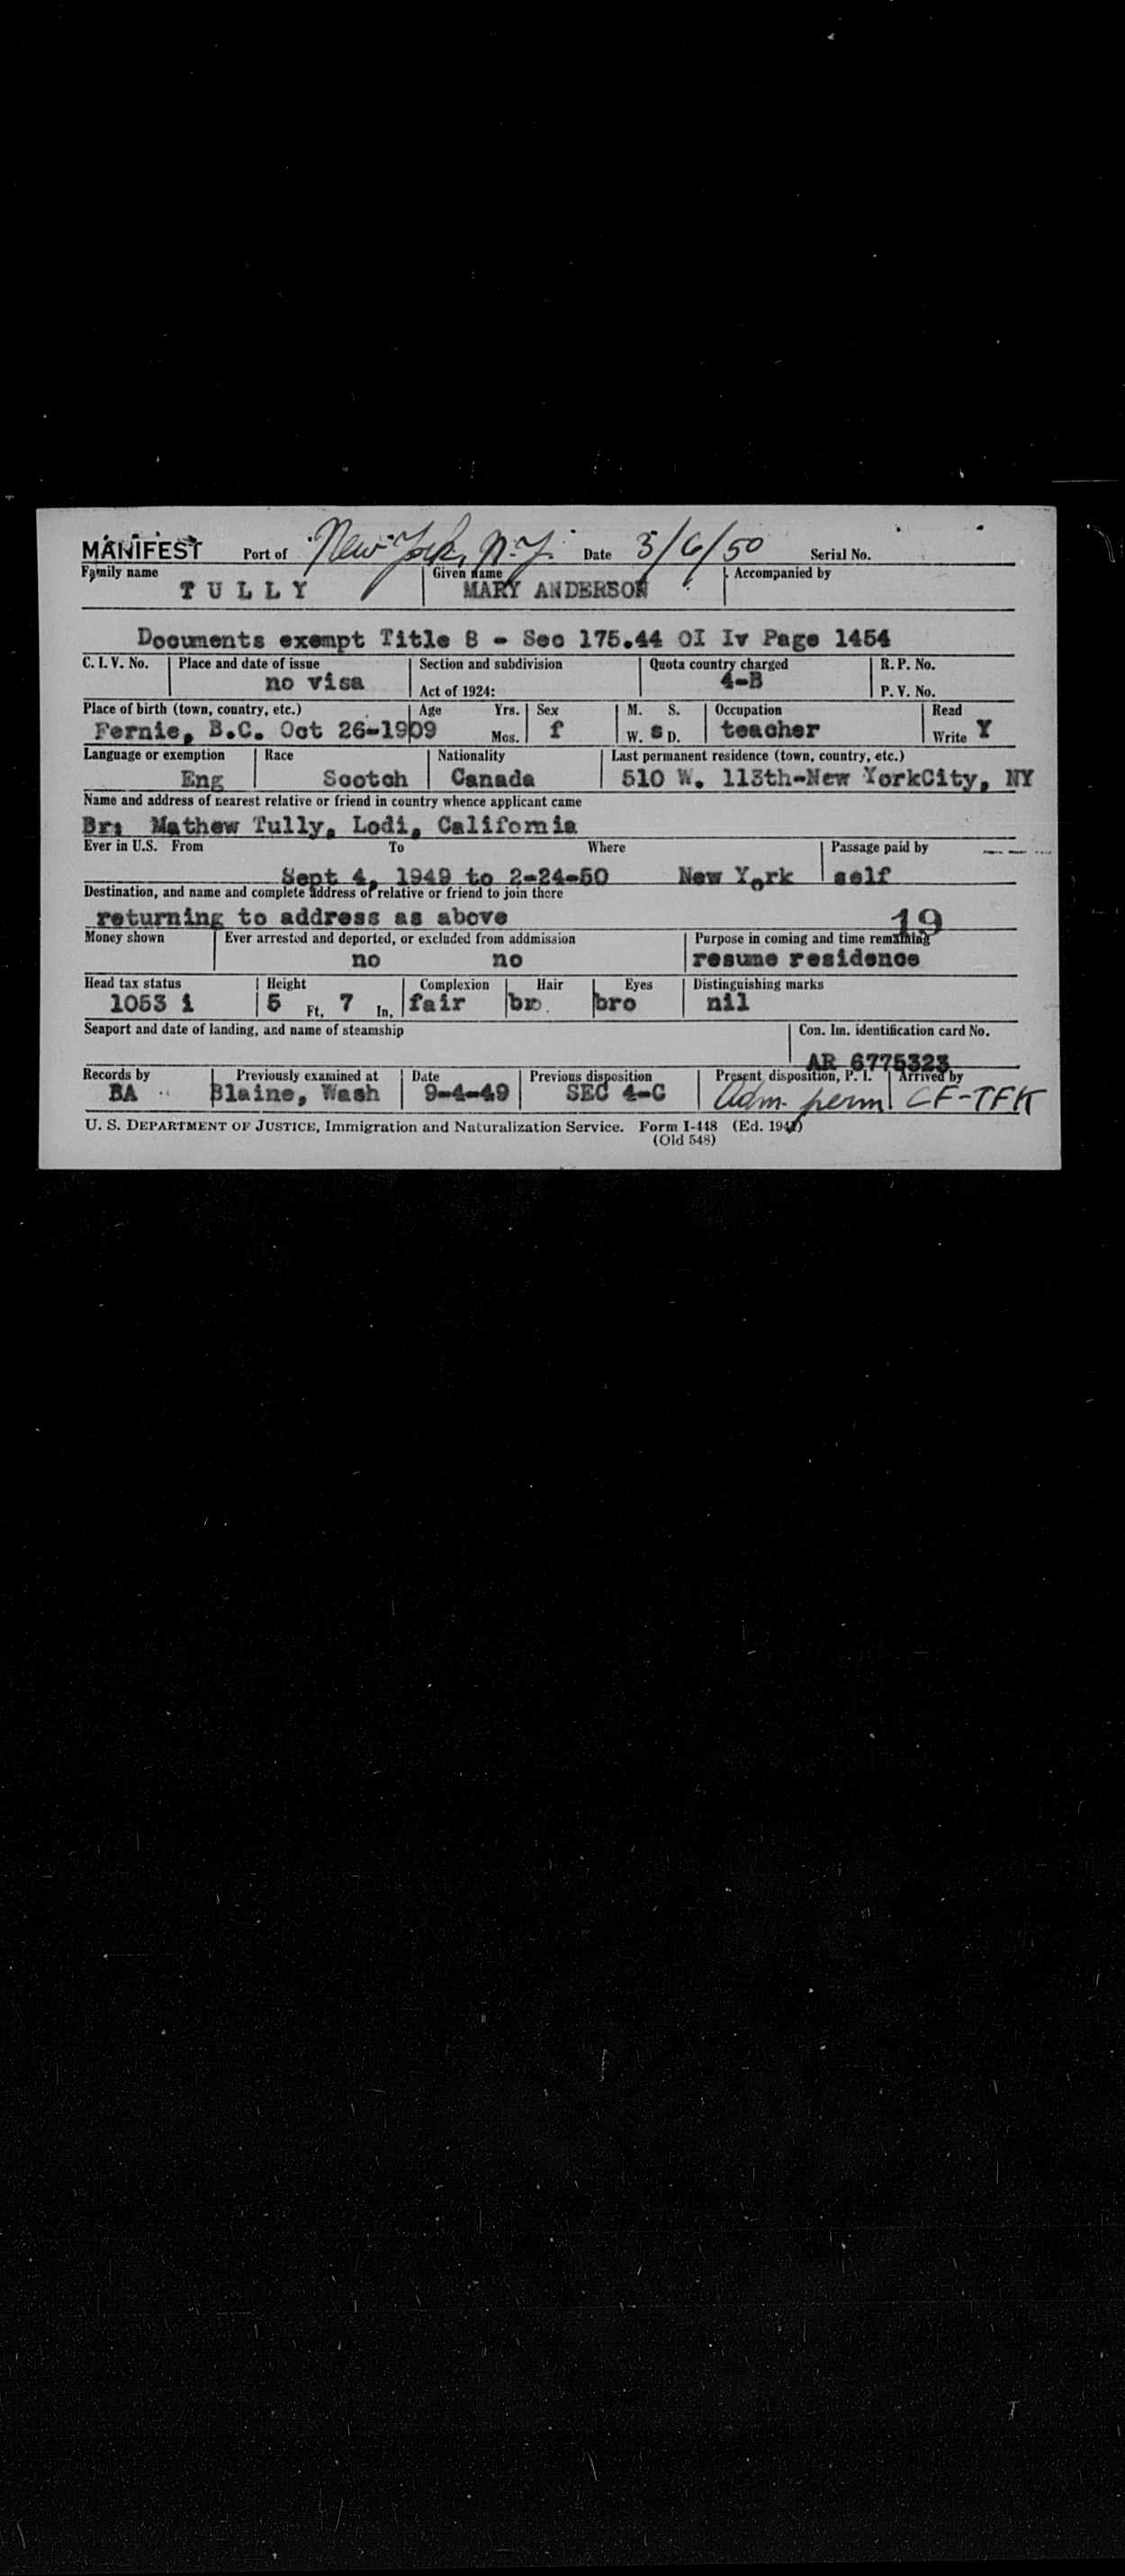 MANIFEST Port of New York, N.Y. Date 3/6/50 Serial No.
Family name Given name Accompanied by
TULLY MARY ANDERSON
Documents exempt Title 8 - Sec 175.44 OI Iv Page 1454
C. I. V. No. Place and date of issue Section and subdivision Quota country charged R. P. No.
no visa Act of 1924: 4-B P. V. No.
Place of birth (town, country, etc.) Age Yrs. Sex M. S. Occupation Read
Fernie, B.C. Oct 26-1909 Mos. f W. S D. teacher Write Y
Language or exemption Race Nationality Last permanent residence (town, country, etc.)
Eng Scotch Canada 510 W. 113th-New YorkCity, NY
Name and address of nearest relative or friend in country whence applicant came
Br: Mathew Tully, Lodi, California
Ever in U.S. From To Where Passage paid by
Sept 4, 1949 to 2-24-50 New York self
Destination, and name and complete address of relative or friend to join there
returning to address as above 19
Money shown Ever arrested and deported, or excluded from addmission Purpose in coming and time remaining
no no resume residence
Head tax status Height Complexion Hair Eyes Distinguishing marks
1053 i 5 Ft. 7 In. fair br. bro nil
Seaport and date of landing, and name of steamship Con. Im. identification card No.
AR 6775323
Records by Previously examined at Date Previous disposition Present disposition, P. I. Arrived by
BA Blaine, Wash 9-4-49 SEC 4-C Adm. perm CF-TFK
U. S. DEPARTMENT OF JUSTICE, Immigration and Naturalization Service. Form I-448 (Ed. 1941)
(Old 548)